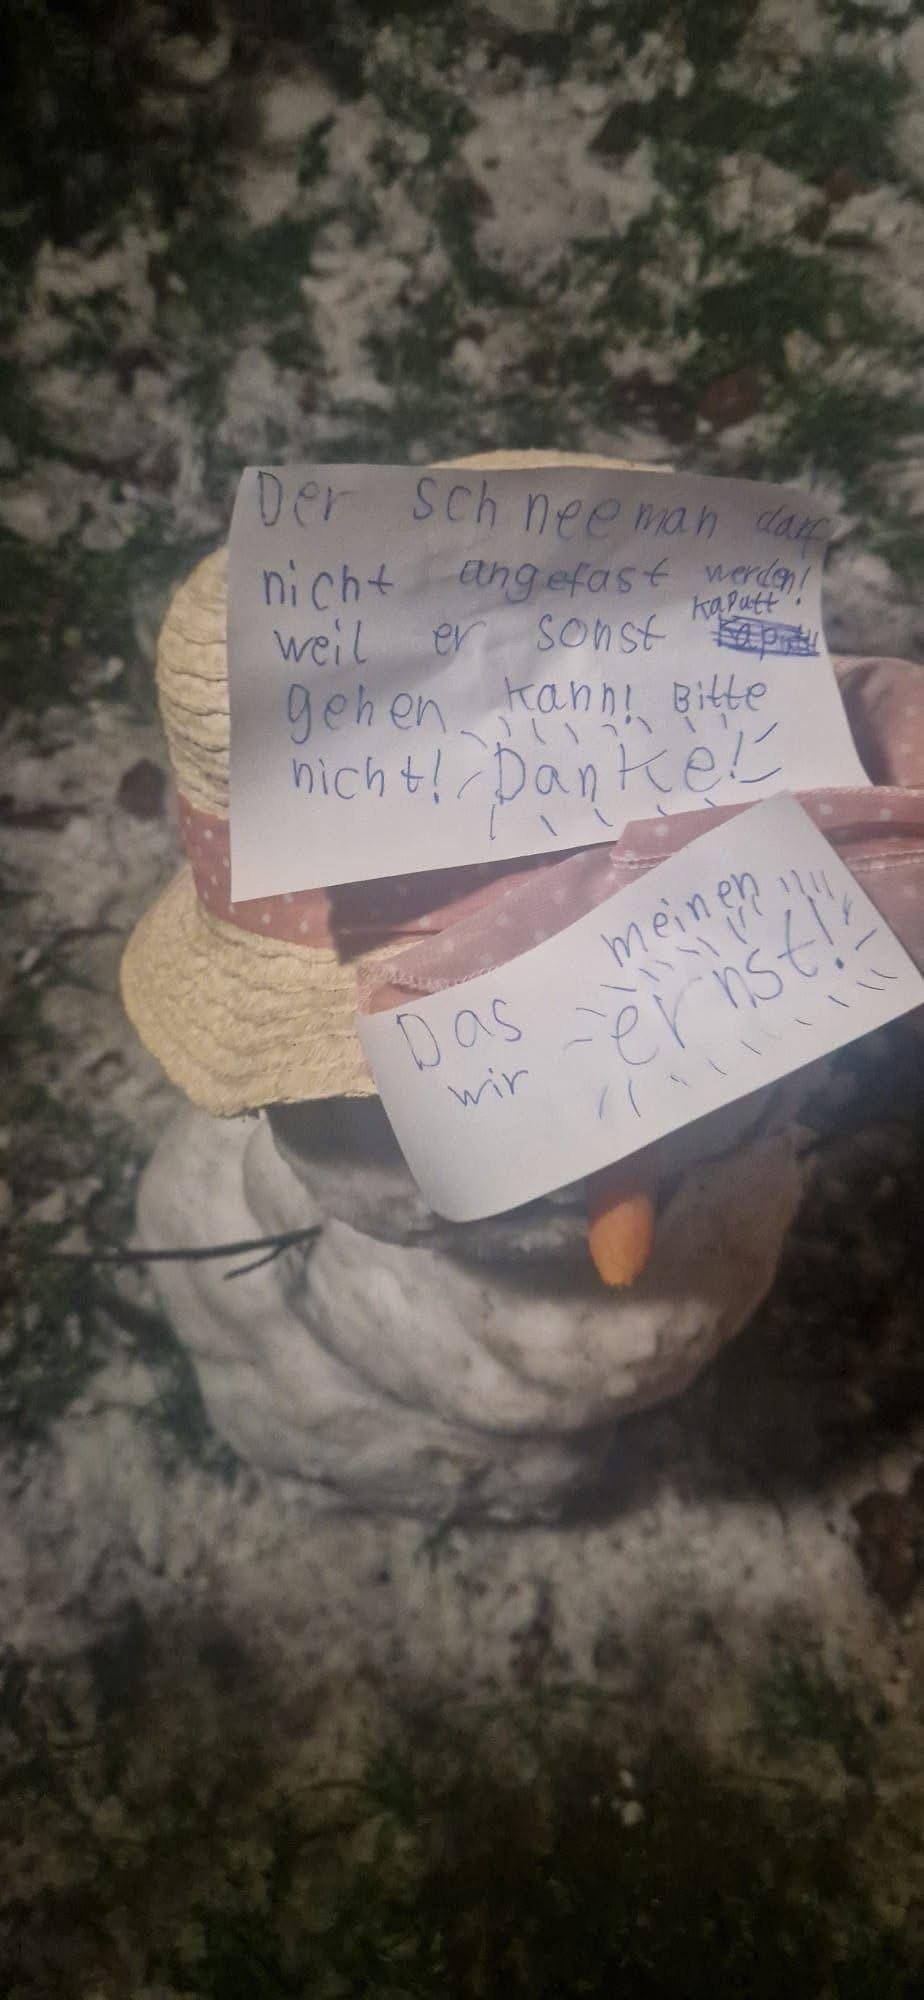 Der Schneeman darf
nicht angefast werden!
weil er sonst kaputt!
gehen kann! Bitte
nicht! Danke!
meinen !!!!
Das ernst!
wir